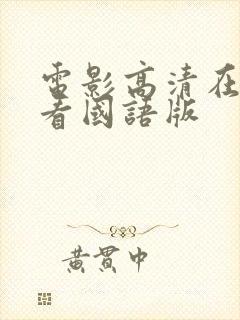 電影高清在
看國語版
黃貫中